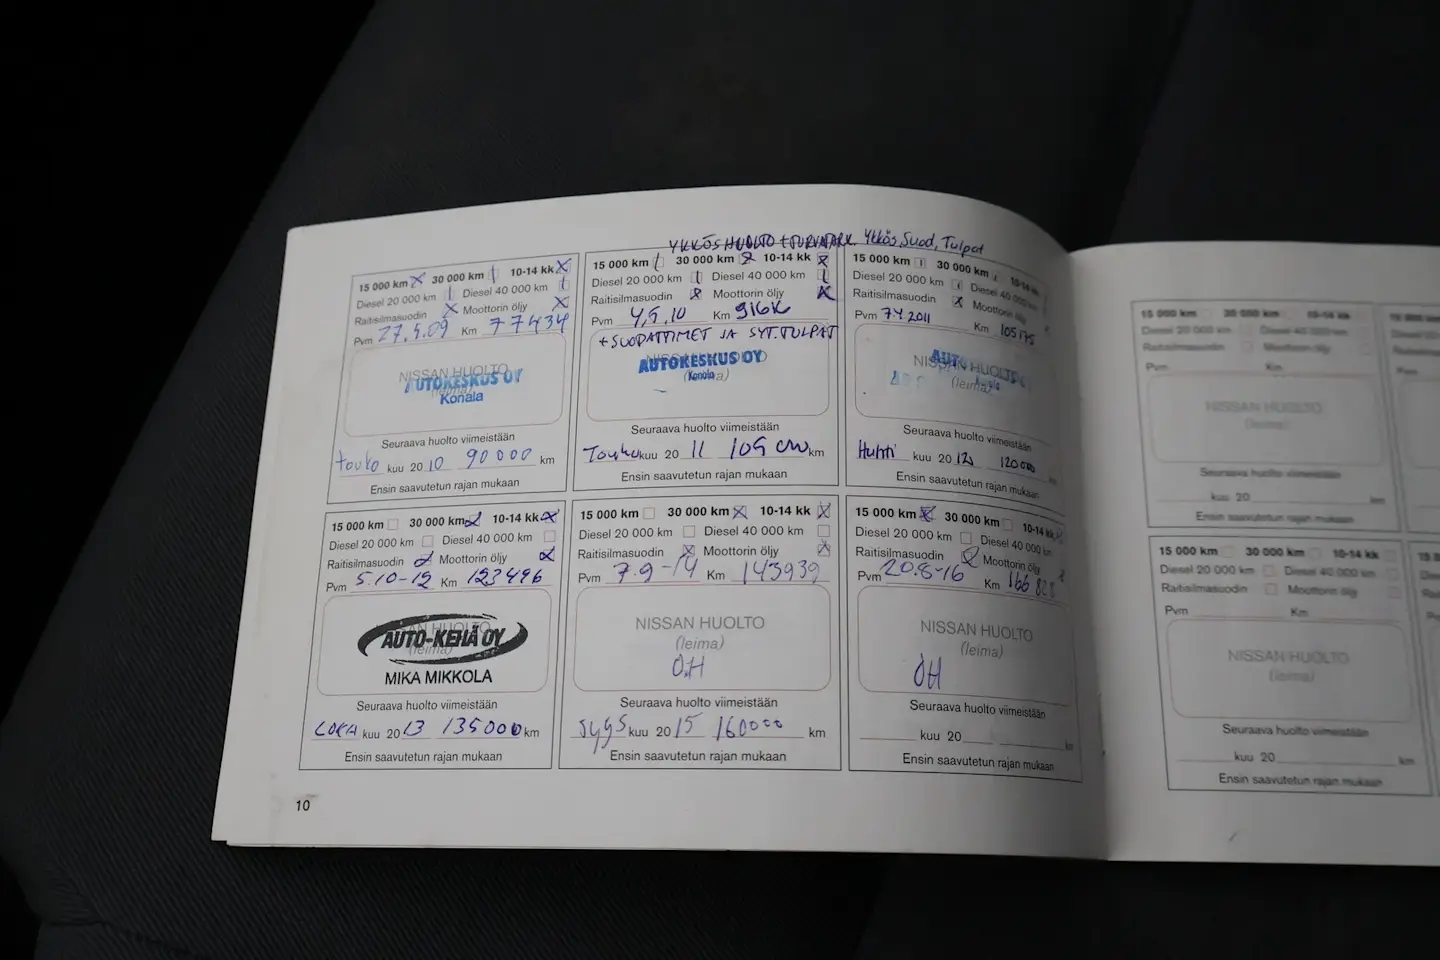 YKKÖSHUOLTO + TURVATARK. Ykkös, Suod, Tulpat
15 000 km 30 000 km 10-14 kk
Diesel 20 000 km Diesel 40 000 km
Raitisilmasuodin Moottorin öljy
Pvm 27.5.09 Km 77434
NISSAN HUOLTO
(leima)
AUTOKESKUS OY
Konala
Seuraava huolto viimeistään
touko kuu 2010 90000 km
Ensin saavutetun rajan mukaan
15 000 km 30 000 km 10-14 kk
Diesel 20 000 km Diesel 40 000 km
Raitisilmasuodin Moottorin öljy
Pvm 4.5.10 Km 916K
+ SUODATTIMET JA SYT.TULPAT
NISSAN HUOLTO
(leima)
AUTOKESKUS OY
Konala
Seuraava huolto viimeistään
Touko kuu 20 11 105 km
Ensin saavutetun rajan mukaan
15 000 km 30 000 km 10-14
Diesel 20 000 km Diesel 40 000 km
Raitisilmasuodin Moottorin öljy
Pvm 7.4.2011 Km 105175
NISSAN HUOLTO
(leima)
Seuraava huolto viimeistään
Huhti kuu 2012 120000 km
Ensin saavutetun rajan mukaan
15 000 km 30 000 km 10-14 kk
Diesel 20 000 km Diesel 40 000 km
Raitisilmasuodin Moottorin öljy
Pvm 5.10-12 Km 123496
NISSAN HUOLTO
(leima)
AUTO-KEHÄ OY
MIKA MIKKOLA
Seuraava huolto viimeistään
LOKA kuu 2013 135000 km
Ensin saavutetun rajan mukaan
15 000 km 30 000 km 10-14 kk
Diesel 20 000 km Diesel 40 000 km
Raitisilmasuodin Moottorin öljy
Pvm 7.9-14 Km 143939
NISSAN HUOLTO
(leima)
OH
Seuraava huolto viimeistään
syys kuu 2015 160000 km
Ensin saavutetun rajan mukaan
15 000 km 30 000 km 10-14 kk
Diesel 20 000 km Diesel 40 000 km
Raitisilmasuodin Moottorin öljy
Pvm 20.8-16 Km 166828
NISSAN HUOLTO
(leima)
OH
Seuraava huolto viimeistään
kuu 20 km
Ensin saavutetun rajan mukaan
10
15 000 km 30 000 km 10-14 kk
Diesel 20 000 km Diesel 40 000 km
Raitisilmasuodin Moottorin öljy
Pvm Km
NISSAN HUOLTO
(leima)
Seuraava huolto viimeistään
kuu 20 km
Ensin saavutetun rajan mukaan
15 000 km 30 000 km 10-14 kk
Diesel 20 000 km Diesel 40 000 km
Raitisilmasuodin Moottorin öljy
Pvm Km
NISSAN HUOLTO
(leima)
Seuraava huolto viimeistään
kuu 20 km
Ensin saavutetun rajan mukaan